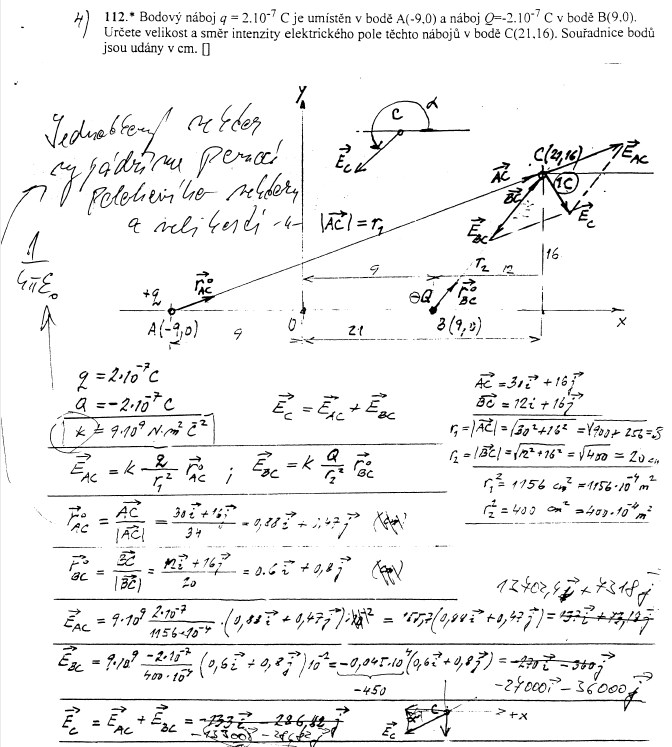 4)
112.* Bodový náboj q = 2.10⁻⁷ C je umístěn v bodě A(-9,0) a náboj Q=-2.10⁻⁷ C v bodě B(9,0).
Určete velikost a směr intenzity elektrického pole těchto nábojů v bodě C(21,16). Souřadnice bodů
jsou udány v cm. []
Jednotkový vektor
vyjádříme pomocí
polohového vektoru
a velikosti
1/4πε₀
y
C
α
E⃗_C
C(21,16)
E⃗_AC
A⃗C
B⃗C
E⃗_BC
E⃗_C
|A⃗C| = r₁
16
9
r₂
12
+q
r⃗°_AC
⊖Q
r⃗°_BC
A(-9,0)
9
0
21
B(9,0)
x
q = 2·10⁻⁷ C
Q = -2·10⁻⁷ C
k = 9·10⁹ N·m² C⁻²
E⃗_C = E⃗_AC + E⃗_BC
A⃗C = 30i⃗ + 16j⃗
B⃗C = 12i⃗ + 16j⃗
r₁ = |A⃗C| = √30² + 16² = √900 + 256 = 3
r₂ = |B⃗C| = √12² + 16² = √400 = 20
r₁² = 1156 cm² = 1156·10⁻⁴ m²
r₂² = 400 cm² = 400·10⁻⁴ m²
E⃗_AC = k q/r₁² r⃗°_AC ; E⃗_BC = k Q/r₂² r⃗°_BC
r⃗°_AC = A⃗C/|A⃗C| = 30i⃗ + 16j⃗/34 = 0,88i⃗ + 0,47j⃗
r⃗°_BC = B⃗C/|B⃗C| = 12i⃗ + 16j⃗/20 = 0.6i⃗ + 0,8j⃗
13702,4i⃗ + 7318j⃗
E⃗_AC = 9·10⁹ 2·10⁻⁷/1156·10⁻⁴ · (0,88i⃗ + 0,47j⃗)
E⃗_BC = 9·10⁹ -2·10⁻⁷/400·10⁻⁴ (0,6i⃗ + 0,8j⃗)10⁻² = -0,045·10⁴(0,6i⃗ + 0,8j⃗) = -270i⃗ - 360j⃗
-450
-27000i⃗ - 36000j⃗
E⃗_C = E⃗_AC + E⃗_BC = -133i⃗ - 286,82j⃗
C
+x
E⃗_C